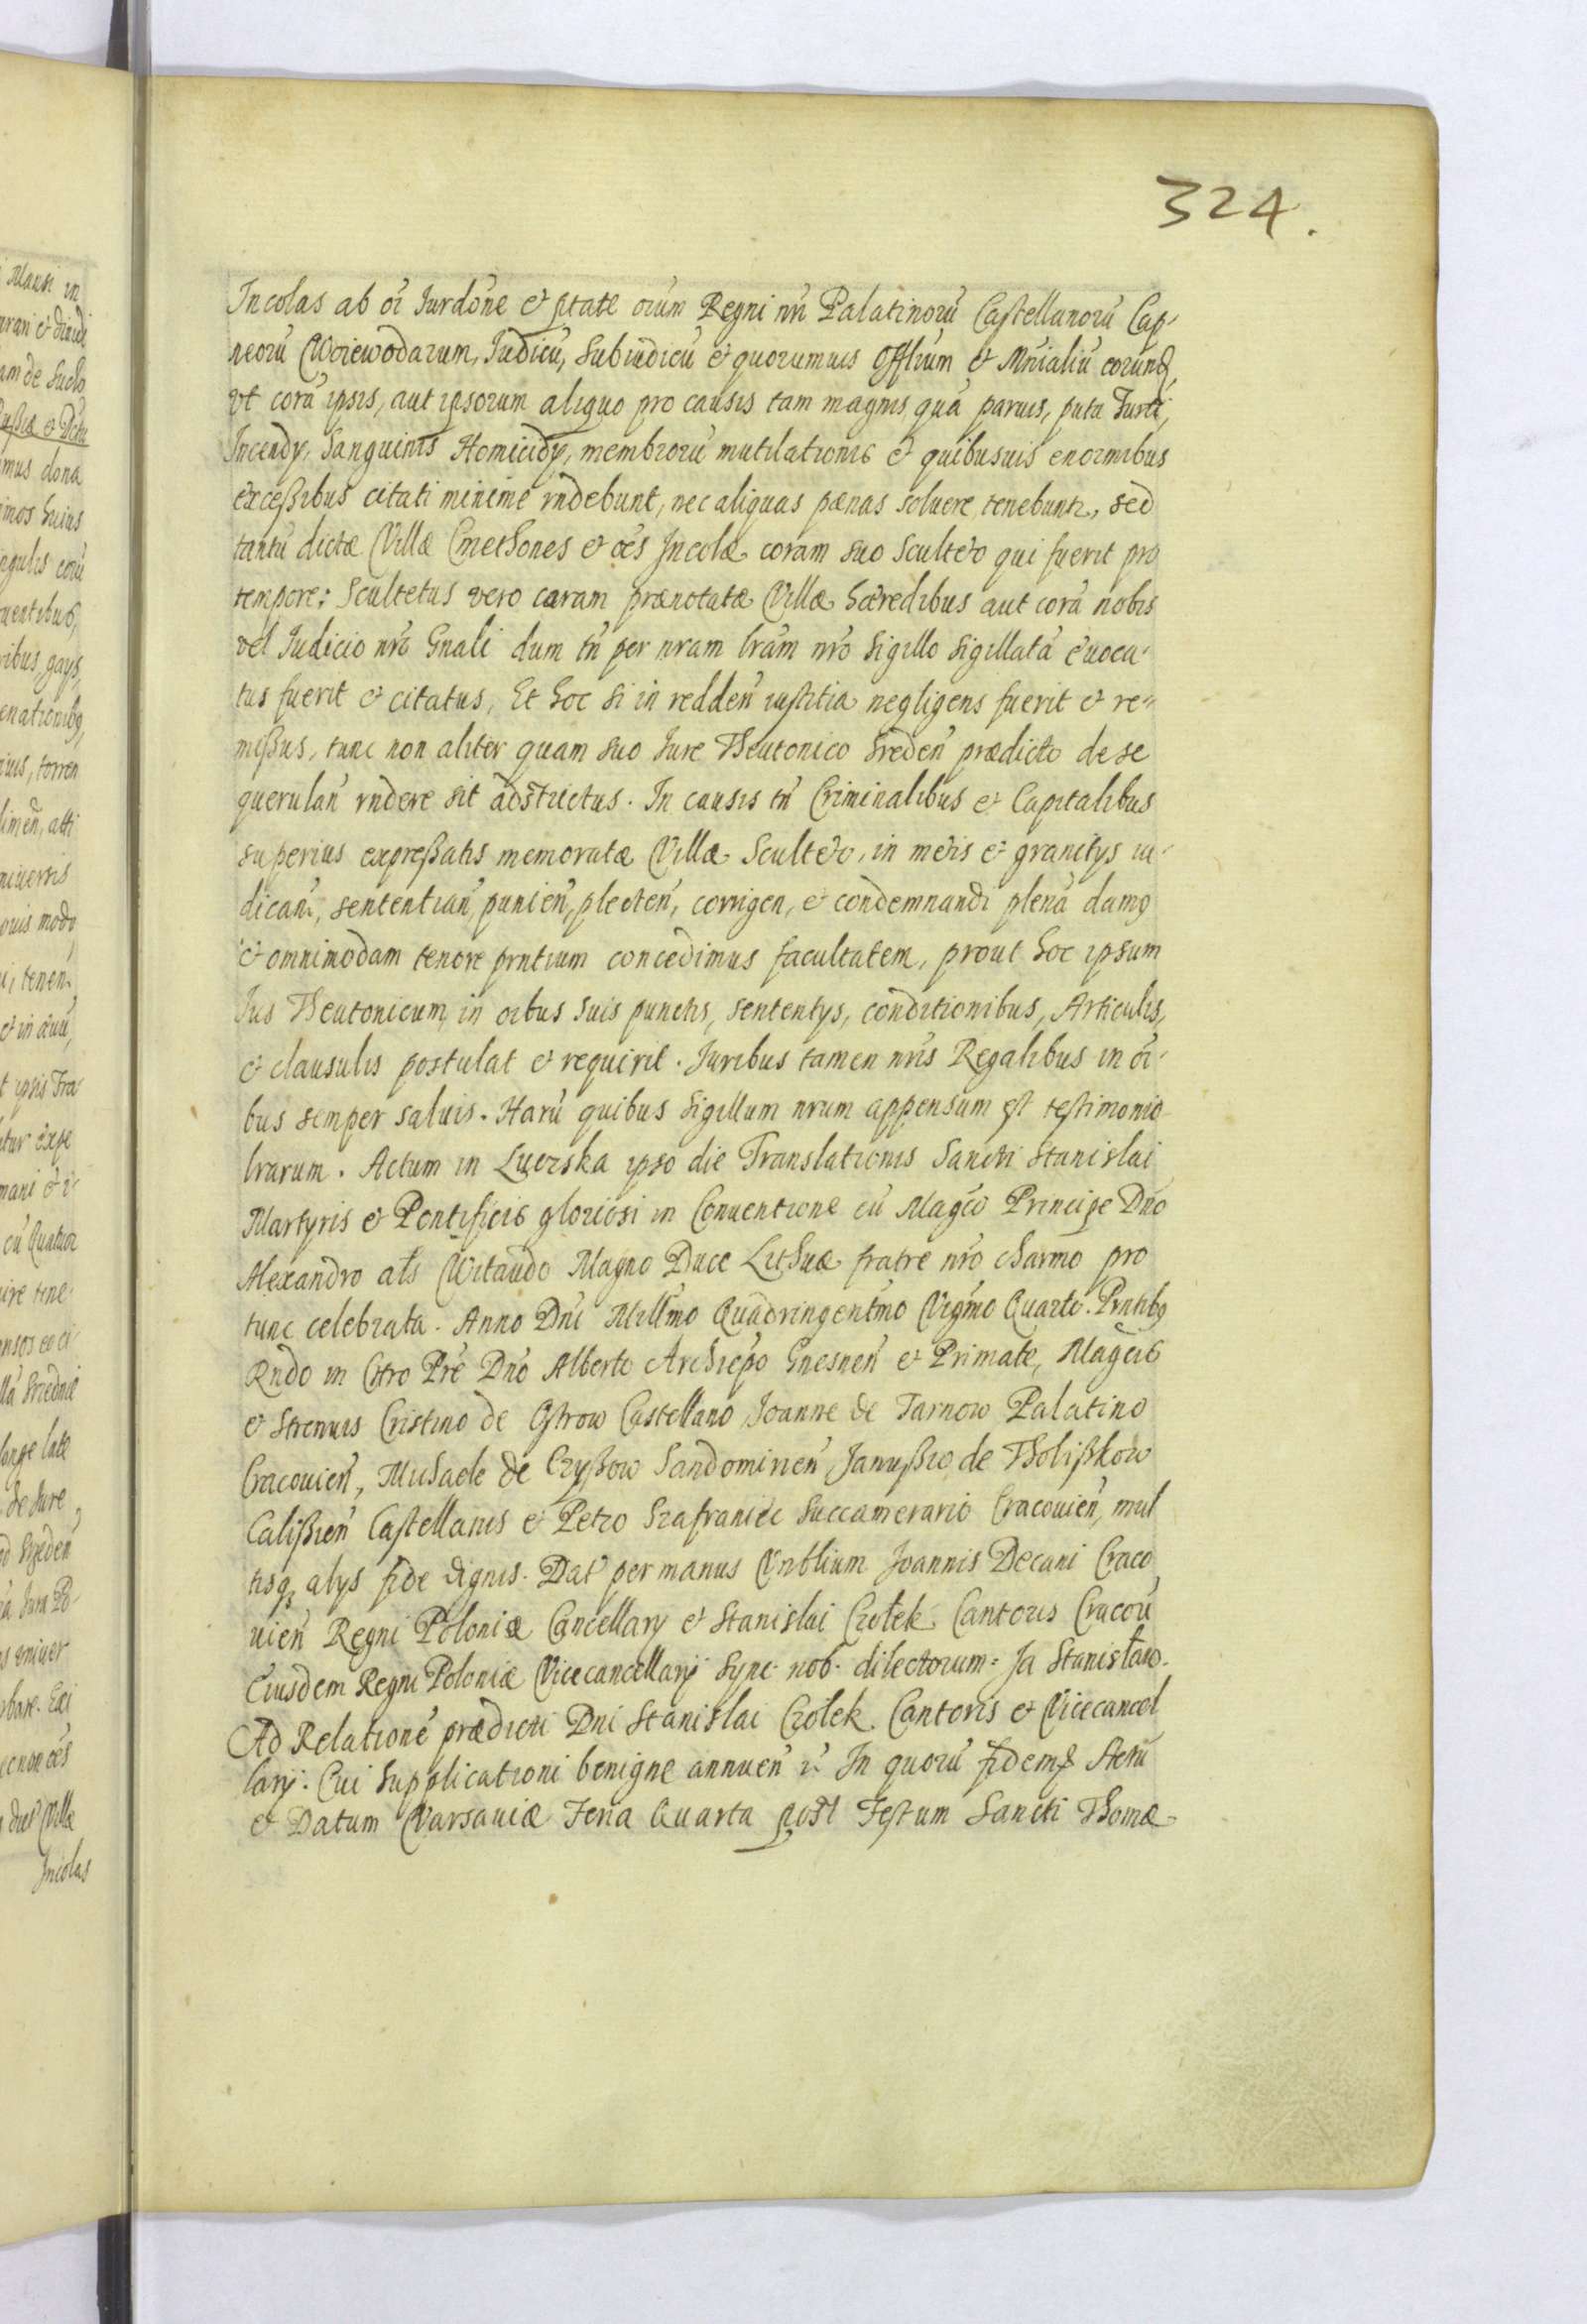 324.
Incolas ab oĩ Iurdõne et ptate oium Regni nri Palatinorũ Castellanorũ Cap-
neorũ Woiewodarum, Iudicũ, Subiudicũ et quorumuis Offlium et Mnialiũ eorund,
vt corã ipsis, aut ipsorum aliquo pro causis tam magnis quã paruis, puta Furti,
Incendy, Sanguinis Homicidy, membrorũ mutilationis et quibusuis enormibus
excessibus citati minime rndebunt, nec aliquas pænas soluere tenebuntr, sed
tantũ dictæ Villæ Cmethones et oẽs Incolæ coram suo Sculteto qui fuerit pro
tempore: Scultetus vero coram prænotatæ Villæ hæredibus aut corã nobis
vel Iudicio nrõ Gnali dum tñ per nram lrãm nrõ sigillo sigillatã euoca-
tus fuerit et citatus, Et hoc si in redden̄ iustitia negligens fuerit et re-
missus, tunc non aliter quam suo Iure Theutonico Sreden̄ prædicto de se
querulan̄ rndere sit adstrictus. In causis tñ Criminalibus et Capitalibus
superius expressatis memoratæ Villæ Sculteto, in metis et granitys iu-
dican̄, sententian̄, punien̄, plecten̄, corrigen, et condemnandi plenã damq
et omnimodam tenore prntium concedimus facultatem, prout hoc ipsum
Ius Theutonicum in oibus suis punctis, sententys, conditionibus, Articulis,
et clausulis postulat et requirit. Iuribus tamen nris Regalibus in oĩ-
bus semper saluis. Harũ quibus Sigillum nrum appensum est testimonio
lrarum. Actum in Luczska ipso die Translationis Sancti Stanislai
Martyris et Pontificis gloriosi in Conuentione cũ Magco Principe Dno
Alexandro als Witaudo Magno Duce Lithuæ fratre nrõ charmo pro
tunc celebrata. Anno Dni Millmo Quadringentmo Vigmo Quarto. Prntibq
Rndo in Chro Pre Dno Alberto Archiepo Gnesnen̄ et Primate, Magcis
et Strenuis Cristino de Ostrow Castellano Joanne de Tarnow Palatino
Cracouien̄, Michaele de Czyssow Sandomirien̄ Janussio de Tholisskow
Calissien̄ Castellanis et Petro Szafraniec Succamerario Cracouien̄, mul
tisq, alys fide dignis. Dat per manus Vnblium Joannis Decani Craco
uien̄ Regni Poloniæ Cancellary et Stanislai Czołek Cantoris Cracou
Eiusdem Regni Poloniæ Vicecancellarij Sync. nob. dilectorum: Ja Stanisław.
Ad Relationẽ prædicti Dni Stanislai Czolek Cantoris et Vicecancel
larij. Cui supplicationi benigne annuen̄ In quorũ fidemq Actũ
et Datum Varsauiæ Feria Quarta post Festum Sancti Thomæ